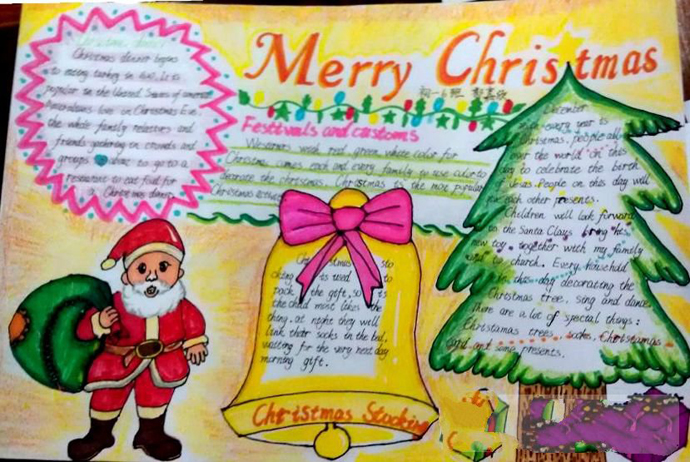 Merry Christmas
初一6班
Christmas dinner
Christmas dinner begins
to mainy turkey in 1620. It is
popular in the United States of america
Americans live on Christmas Eve.
the whole family relatives and
friends gathering in crowds and
groups to go to a
restaurant to eat food for
a Christmas dinner
Festivals and customs
Westerners wish red green white color for
Christmas comes each and every family to use color to
decorate the christmas. Christmas is the most popular
Christmas
Christmas sto
cking is used to
pack the gift, so is
the child most likes the
thing, at night they will
link their socks in the bed,
waiting for the very next day
morning gift.
Christmas Stocking
December
25th every year is
Christmas, people all
over the world on this
day to celebrate the birth
Jesus. People on this day will
give each other presents.
Children will look forward
to the Santa Claus bring his
new toy. together with my family
to church. Every household
in this day decorating the
Christmas tree. sing and dance
There are a lot of special things:
Christamas trees socks. Christamas
and some presents.